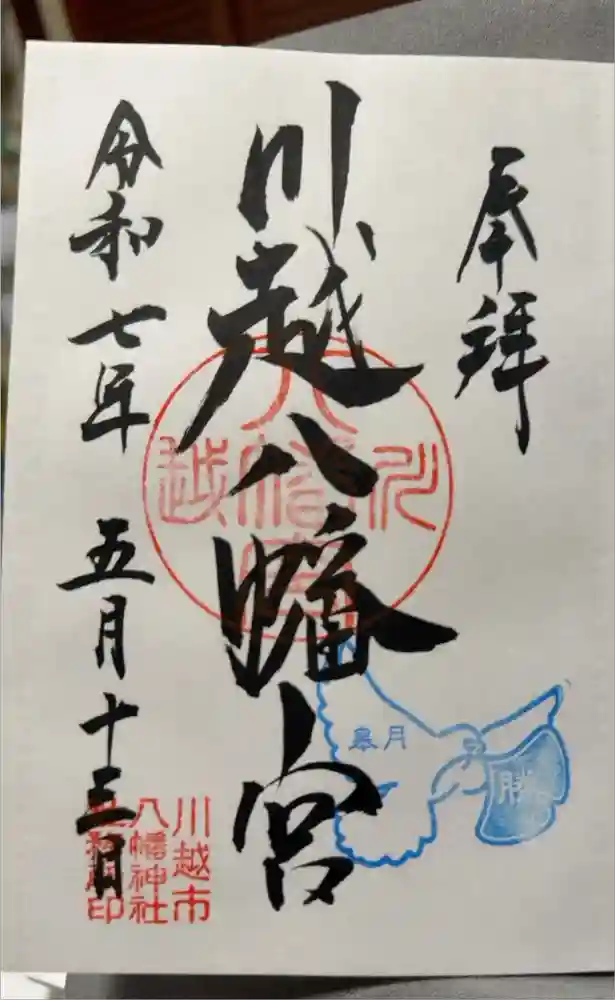 奉拝
川越八幡宮
令和七年 五月十三日
八幡宮
川越
皐月
勝
川越市
八幡神社
印